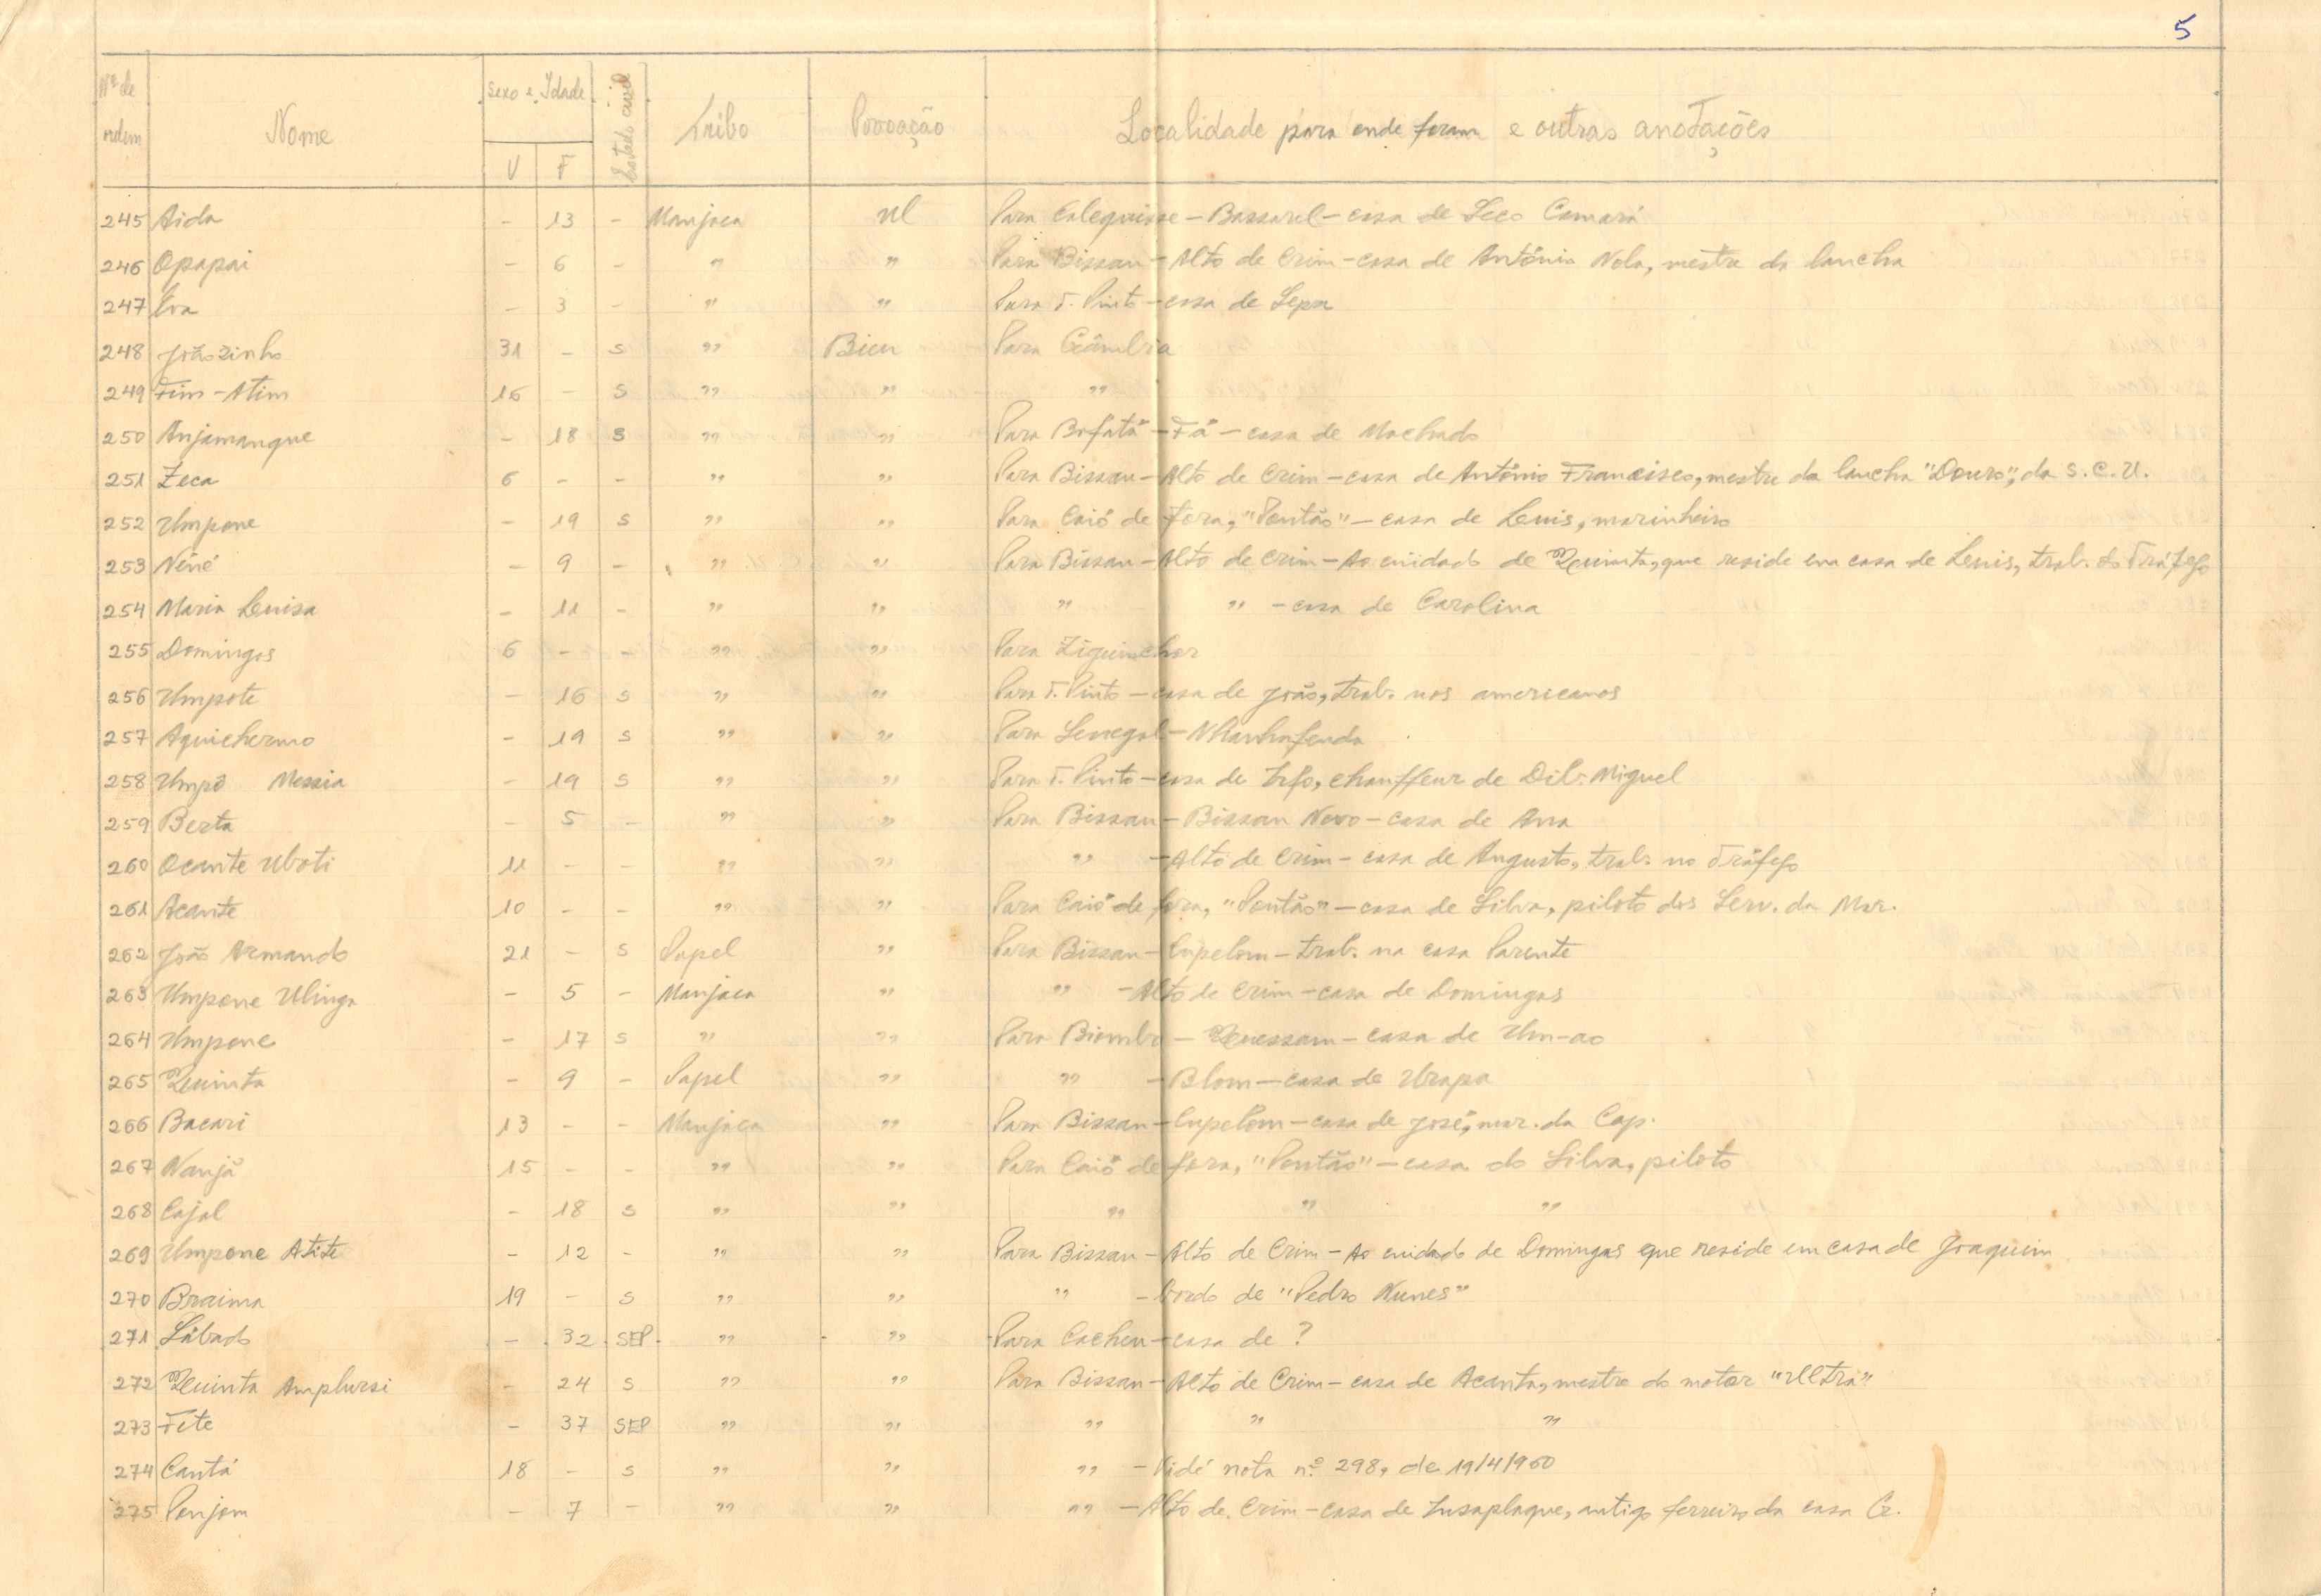 5
Nº de ordem Nome Sexo e Idade V F Estado civil Tribo Povoação Localidade para onde foram e outras anotações
245 Aida - 13 - Manjaca Ul Para Calequisse - Bassarel - casa de Seco Camará
246 Opapai - 6 - " " Para Bissau - Alto de Crim - casa de António Nola, mestre da lancha
247 Eva - 3 - " " Para T. Pinto - casa de Sepa
248 Joãozinho 31 - S " Bieu Para Gâmbia
249 Fim-Atim 16 - S " " "
250 Anjamanque - 18 S " " Para Bafatá - Fá - casa de Machado
251 Zeca 6 - - " " Para Bissau - Alto de Crim - casa de António Francisco, mestre da lancha "Douro", da S.C.U.
252 Umpone - 19 S " " Para Caió de fora, "Pontão" - casa de Luis, marinheiro
253 Nené - 9 - " " Para Bissau - Alto de Crim - Ao cuidado de Quinta, que reside em casa de Luis, trab. do Tráfego
254 Maria Luisa - 11 - " " " " - casa de Carolina
255 Domingos 6 - - " " Para Ziguinchor
256 Umpote - 16 S " " Para T. Pinto - casa de João, trab. nos americanos
257 Aquichermo - 19 S " " Para Senegal - Nhanhafenda
258 Umpô Messia - 19 S " " Para T. Pinto - casa de chauffeur de Dib. Miguel
259 Berta - 5 - " " Para Bissau - Bissau Novo - casa de Ana
260 Ocante Uboti 11 - - " " " - Alto de Crim - casa de Augusto, trab. no Tráfego
261 Acante 10 - - " " Para Caió de fora, "Pontão" - casa de Silva, piloto dos Serv. da Mar.
262 João Armando 21 - S Papel " Para Bissau - Cupelom - trab. na casa Parente
263 Umpone Ulinga - 5 - Manjaca " " - Alto de Crim - casa de Domingas
264 Umpone - 17 S " " Para Biombo - Quessam - casa de Um-ao
265 Quinta - 9 - Papel " " - Blom - casa de Urapa
266 Bacari 13 - - Manjaca " Para Bissau - Cupelom - casa de José, mar. da Cap.
267 Nanjã 15 - - " " Para Caió de fora, "Pontão" - casa do Silva, piloto
268 Cajal - 18 S " " " " "
269 Umpone Atite - 12 - " " Para Bissau - Alto de Crim - Ao cuidado de Domingas que reside em casa de Joaquim
270 Braima 19 - S " " " - bordo de "Pedro Nunes"
271 Sábado - 32 SEP. " " Para Cacheu - casa de ?
272 Quinta Amplursi - 24 S " " Para Bissau - Alto de Crim - casa de Acanta, mestre do motor "Ultra"
273 Fete - 37 SEP " " " " "
274 Cantá 18 - S " " " - Vidé nota nº 298, de 19/4/960
275 Penjam - 7 - " " " - Alto de Crim - casa de Insaplaque, antigo ferreiro da casa G.